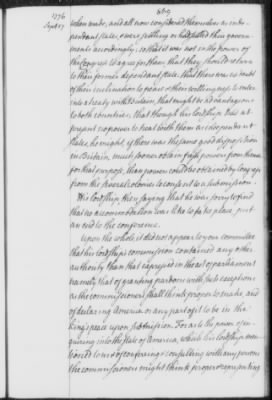 569
1776
Septr 17
when made, and all now considered themselves as inde-
pendant states, & were settling or had settled their govern-
ments accordingly; so that it was not in the power of
the Congress to agree for them that they should return
to their former dependant state. That there was no doubt
of their inclination to peace & their willingness to enter
into a treaty with Britain, that might be advantageous
to both countries; that though his lordship has at
present no power to treat with them as independant
states, he might, if there was the same good disposition
in Britain, much sooner obtain fresh powers from thence
for that purpose, than powers could be obtained by Congress
from the several colonies to consent to a submission.
His lordship then saying that he was sorry to find
that no accommodation was like to take place, put
an end to the conference.
Upon the whole, it did not appear to your committee
that his lordship's commission contained any other
authority than that expressed in the act of parliament
namely that of granting pardons with such exceptions
as the commissioners shall think proper to make, and
of declaring America or any part of it to be in the
king's peace upon submission: For as to the power of en-
quiring into the state of America, which his lordship men-
tioned to us & of conferring & consulting with any persons
the commissioners might think proper & representing